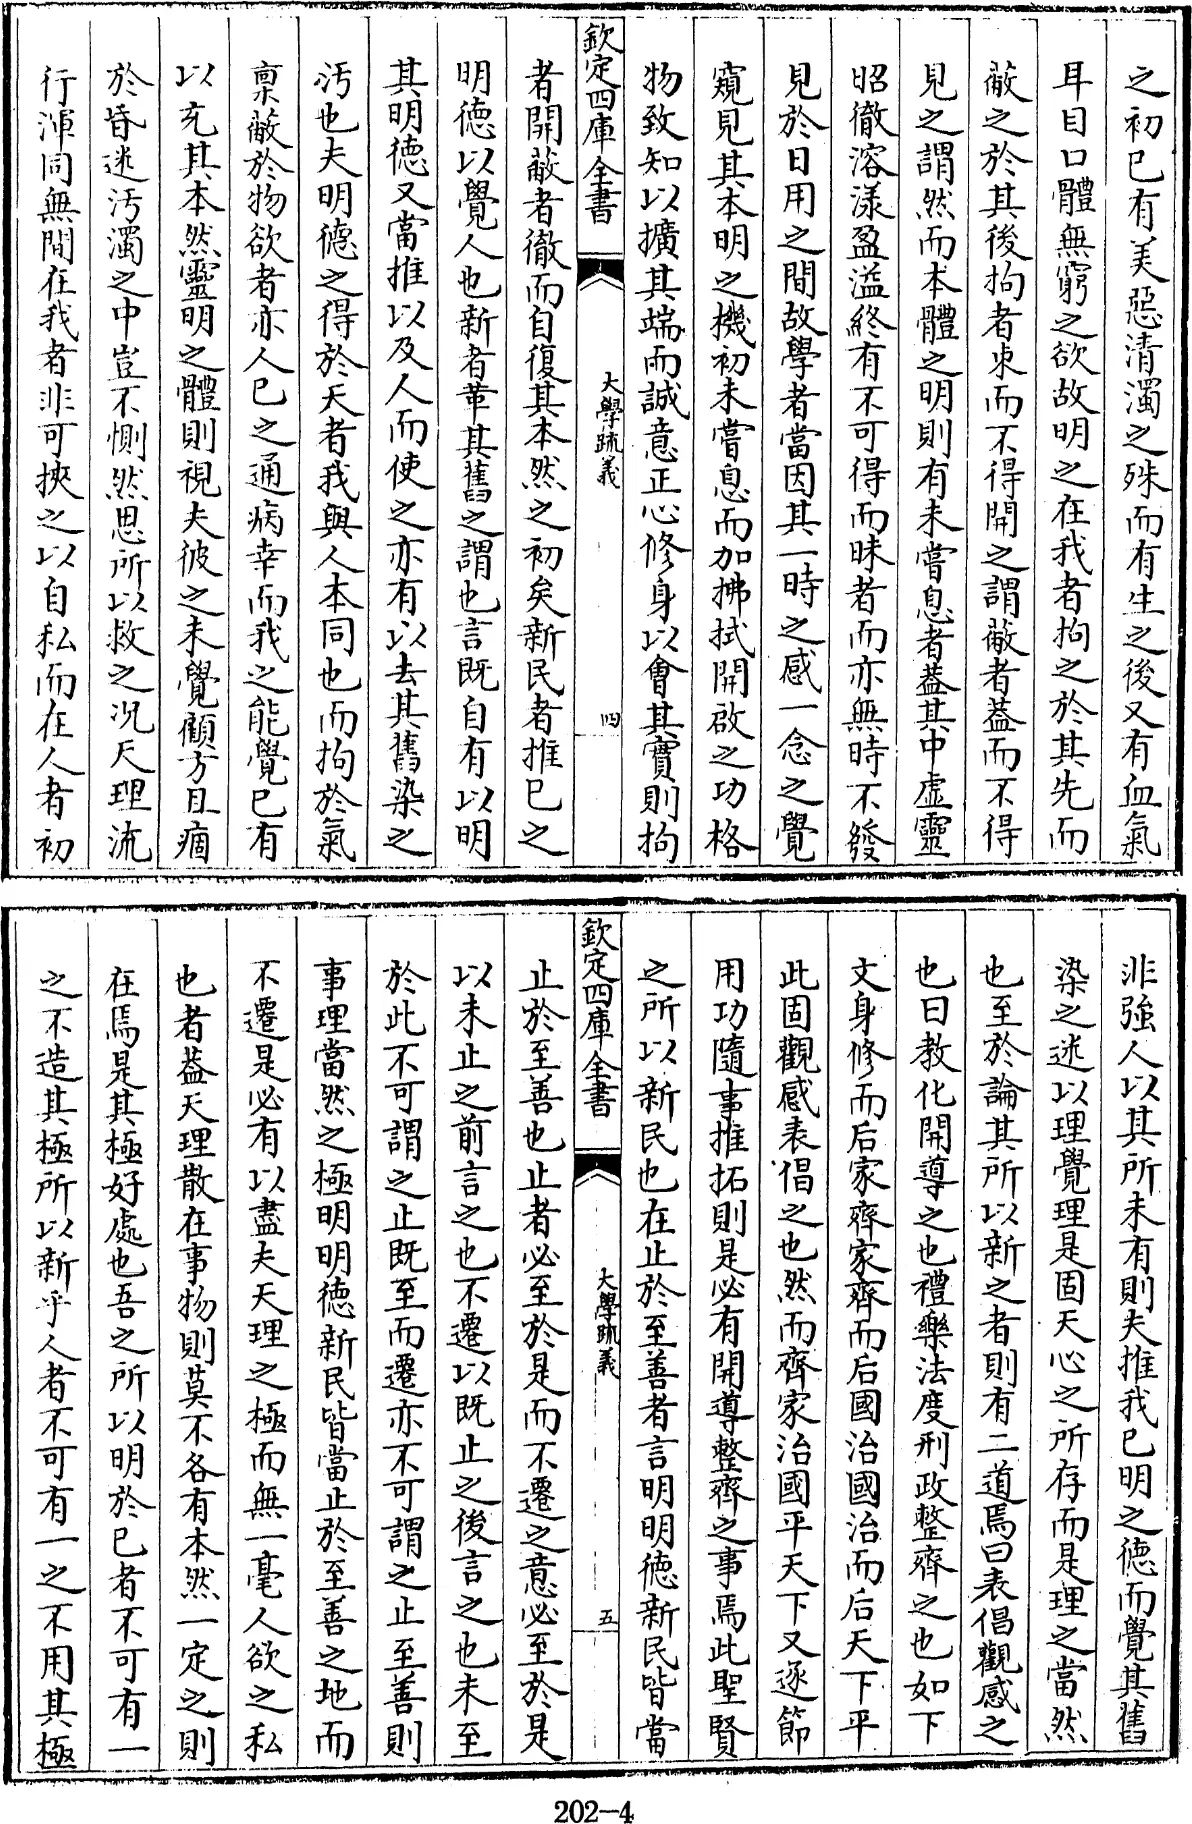 之初已有美惡清濁之殊而有生之後又有血氣
耳目口體無窮之欲故明之在我者拘之於其先而
蔽之於其後拘者束而不得開之謂蔽者葢而不得
見之謂然而本體之明則有未嘗息者葢其中虛靈
昭徹溶漾盈溢終有不可得而昧者而亦無時不發
見於日用之間故學者當因其一時之感一念之覺
窺見其本明之機初未嘗息而加拂拭開啟之功格
物致知以擴其端而誠意正心修身以會其實則拘
欽定四庫全書
大學疏義
四
者開蔽者徹而自復其本然之初矣新民者推已之
明德以覺人也新者革其舊之謂也言既自有以明
其明德又當推以及人而使之亦有以去其舊染之
汚也夫明德之得於天者我與人本同也而拘於氣
稟蔽於物欲者亦人已之通病幸而我之能覺已有
以充其本然靈明之體則視夫彼之未覺顧方且痼
於昏迷汚濁之中豈不惻然思所以救之况天理流
行渾同無間在我者非可挾之以自私而在人者初
非強人以其所未有則夫推我已明之德而覺其舊
染之迷以理覺理是固天心之所存而是理之當然
也至於論其所以新之者則有二道焉曰表倡觀感之
也曰教化開導之也禮樂法度刑政整齊之也如下
文身修而后家齊家齊而后國治國治而后天下平
此固觀感表倡之也然而齊家治國平天下又逐節
用功隨事推拓則是必有開導整齊之事焉此聖賢
之所以新民也在止於至善者言明明德新民皆當
欽定四庫全書
大學疏義
五
止於至善也止者必至於是而不遷之意必至於是
以未止之前言之也不遷以既止之後言之也未至
於此不可謂之止既至而遷亦不可謂之止至善則
事理當然之極明明德新民皆當止於至善之地而
不遷是必有以盡夫天理之極而無一毫人欲之私
也者葢天理散在事物則莫不各有本然一定之則
在焉是其極好處也吾之所以明於已者不可有一
之不造其極所以新乎人者不可有一之不用其極
202-4